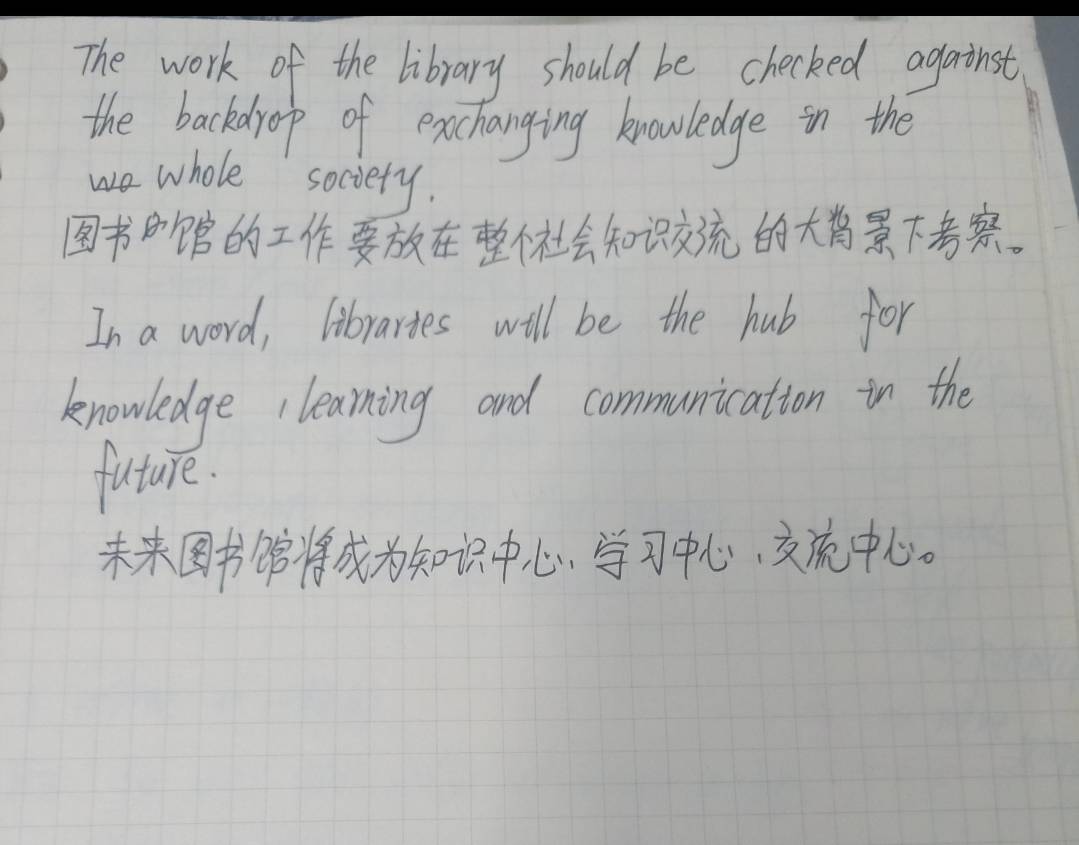 The work of the library should be checked against
the backdrop of exchanging knowledge in the
whole society.
图书馆的工作要放在整个社会知识交流的大背景下考察。
In a word, libraries will be the hub for
knowledge, learning and communication in the
future.
未来图书馆将成为知识中心、学习中心、交流中心。